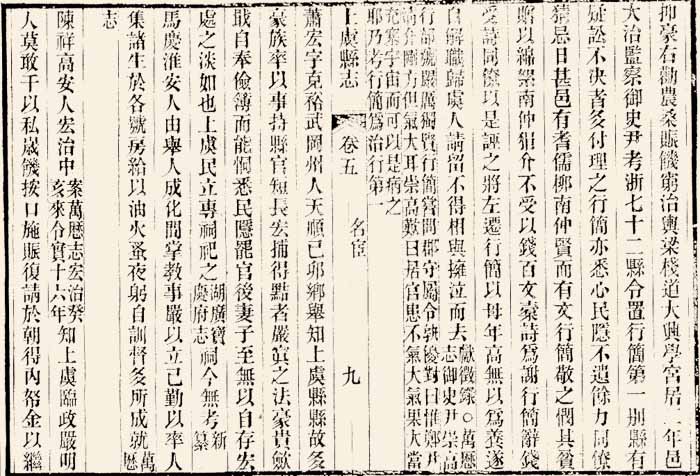 抑豪右勸農桑賑饑窮治輿梁棧道大興學宫居二年邑
大治監察御史尹考浙七十二縣令置行簡第一别縣有
疑訟不決者多付理之行簡亦悉心民隱不遺餘力同僚
猜忌日甚邑有耆儒柳南仲賢而有文行簡敬之憫其貧
賙以綿絮南仲狷介不受以錢百文索詩爲謝行簡辭錢
受詩同僚以是誣之將左遷行簡以母年高無以爲養遂
自解職歸虞人請留不得相與擁泣而去
上虞縣志
卷五
名宦
九
蕭宏字克裕武岡州人天順己卯鄉舉知上虞縣縣故多
豪族率以事持縣官短長宏捕得黠者嚴寘之法豪貴斂
戢自奉儉薄而能恫悉民隱罷官後妻子至無以自存宏
處之淡如也上虞民立專祠祀之湖廣寶慶府志 祠今無考新纂
馬慶淮安人由舉人成化間掌教事嚴以立己勤以率人
集諸生於各號房給以油火蚤夜躬自訓督多所成就萬歷
志
陳祥高安人宏治中案萬歷志宏治癸亥來令實十六年知上虞臨政嚴明
人莫敢干以私歲饑按口施賑復請於朝得内帑金以繼